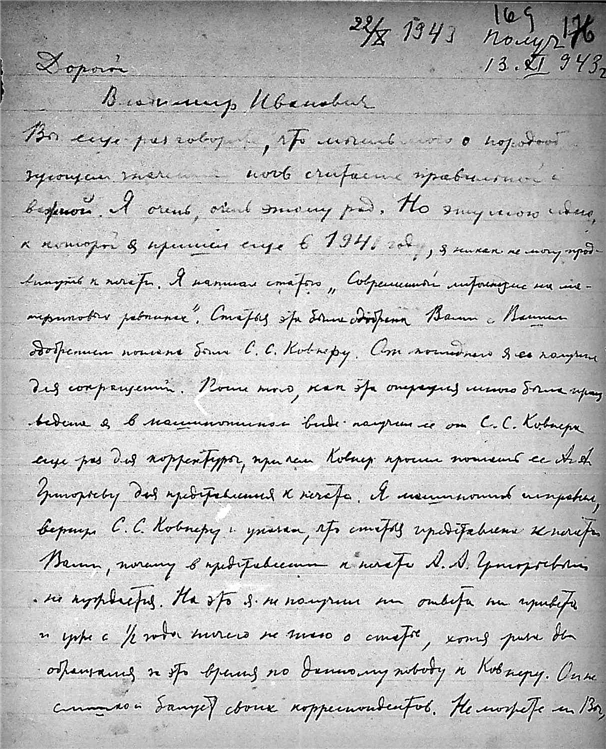 22/X 1943 169 176
Получ
13.XI 943 г
Дорогой
Владимир Иванович
Вы еще раз говорите, что мысль мою о породооб
зующем значении почв считаете правильной и
важной. Я очень, очень этому рад. Но эту мою идею,
к которой я пришел еще в 1941 году, я никак не могу прод-
винуть к печати. Я написал статью „Современный литогенез на ма-
териковых равнинах". Статья эта была одобрена Вами и с Вашим
одобрением послана была С. С. Ковнеру. От последнего я ее получил
для сокращений. После того, как эта операция мною была прои
ведена я в машинописном виде получил ее от С. С. Ковнера
еще раз для корректуры, причем Ковнер просил послать ее А. А.
Григорьеву для представления к печати. Я машинопись исправил,
вернул С. С. Ковнеру и указал, что статья представлена к печати
Вами, почему в представлении к печати А. А. Григорьевым
не нуждается. На это я не получил ни ответа ни привета
и уже с 1/2 года ничего не знаю о статье, хотя раза два
обращался за это время по данному поводу к Ковнеру. Он не
слишком балует своих корреспондентов. Не можете ли Вы,